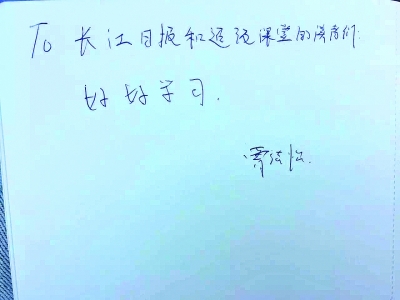 To 长江日报和课堂的读者们:
好好学习.